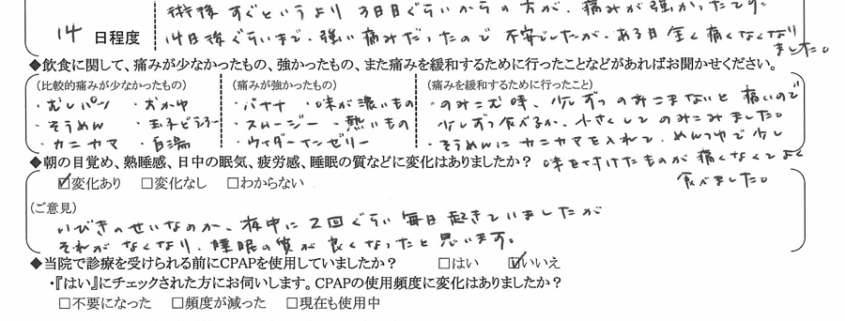 術後すぐというより3日目ぐらいからの方が、痛みが強かったです。
14日程度
14日後ぐらいまで、強い痛みだったので不安でしたが、ある日全く痛くなくなりました。
◆飲食に関して、痛みが少なかったもの、強かったもの、また痛みを緩和するために行ったことなどがあればお聞かせください。
(比較的痛みが少なかったもの)
・むしパン ・おかゆ
・そうめん ・玉子どうふ
・カニカマ ・白湯
(痛みが強かったもの)
・バナナ ・味が濃いもの
・スムージー ・熱いもの
・ウイダーインゼリー
(痛みを緩和するために行ったこと)
・のみこむ時、少しずつのみこまないと痛いので
少しずつ食べるか、小さくしてのみこみました。
・そうめんにカニカマを入れて、めんつゆで少し
味を付けたものが痛くなくてよく
食べました。
◆朝の目覚め、熟睡感、日中の眠気、疲労感、睡眠の質などに変化はありましたか？
☑変化あり □変化なし □わからない
(ご意見)
いびきのせいなのか、夜中に2回ぐらい毎日起きていましたが
それがなくなり、睡眠の質が良くなったと思います。
◆当院で診療を受けられる前にCPAPを使用していましたか？ □はい ☑いいえ
・『はい』にチェックされた方にお伺いします。CPAPの使用頻度に変化はありましたか？
□不要になった □頻度が減った □現在も使用中